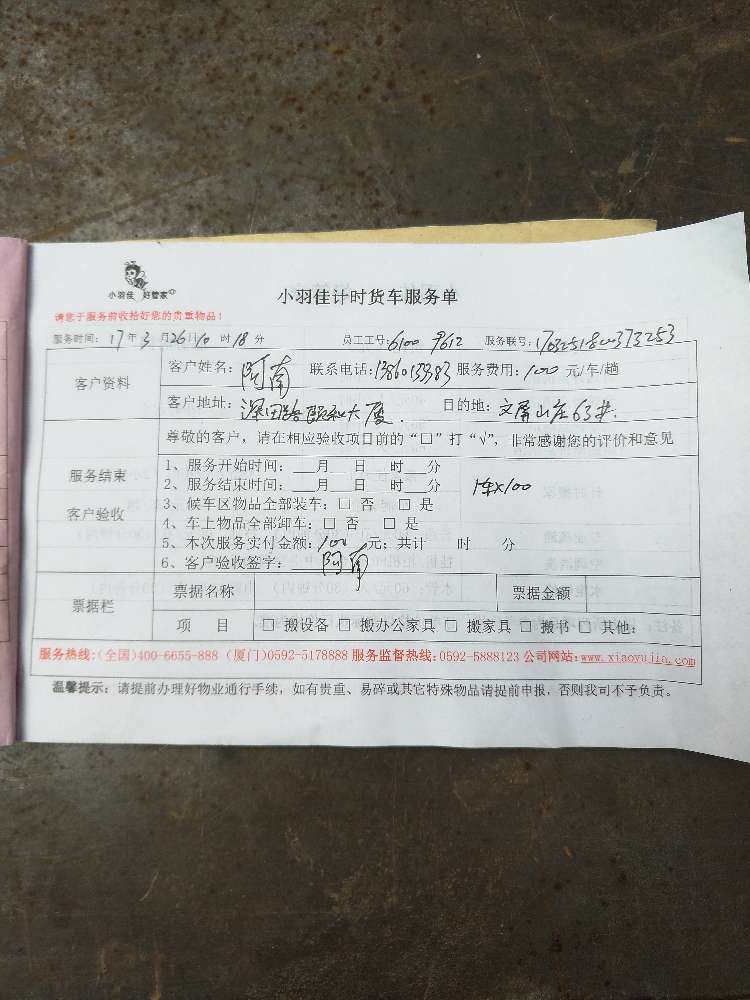 小羽佳 好管家
小羽佳计时货车服务单
请您于服务前收拾好您的贵重物品！
服务时间：17年3月26日10时18分 员工工号：6100 9612 服务联号：
客户资料
客户姓名：阿南 联系电话：13860133383 服务费用：100元/车/趟
客户地址：深田路颐和大厦. 目的地：文屏山庄63#.
服务结束
客户验收
尊敬的客户，请在相应验收项目前的“□”打“√”，非常感谢您的评价和意见
1、服务开始时间：___月___日___时___分
2、服务结束时间：___月___日___时___分 1车x100
3、候车区物品全部装车：□ 否 □ 是
4、车上物品全部卸车：□ 否 □ 是
5、本次服务实付金额：100元；共计 时 分
6、客户验收签字：阿南
票据栏
票据名称 票据金额
项 目 □ 搬设备 □ 搬办公家具 □ 搬家具 □ 搬书 □ 其他：
服务热线：(全国)400-6655-888 (厦门)0592-5178888 服务监督热线：0592-5888123 公司网站：www.xiaoyujia.com
温馨提示：请提前办理好物业通行手续，如有贵重、易碎或其它特殊物品请提前申报，否则我司不予负责。